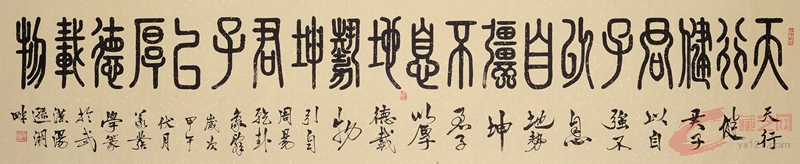 天行健君子以自彊不息地勢坤君子以厚德載物
天行
健
君子
以自
強不
息
地勢
坤
君子
以厚
德載
物
引自
周易
乾卦
象辭
歲次
甲午
伏月
學篆
於武
漢湯
遜湖
畔